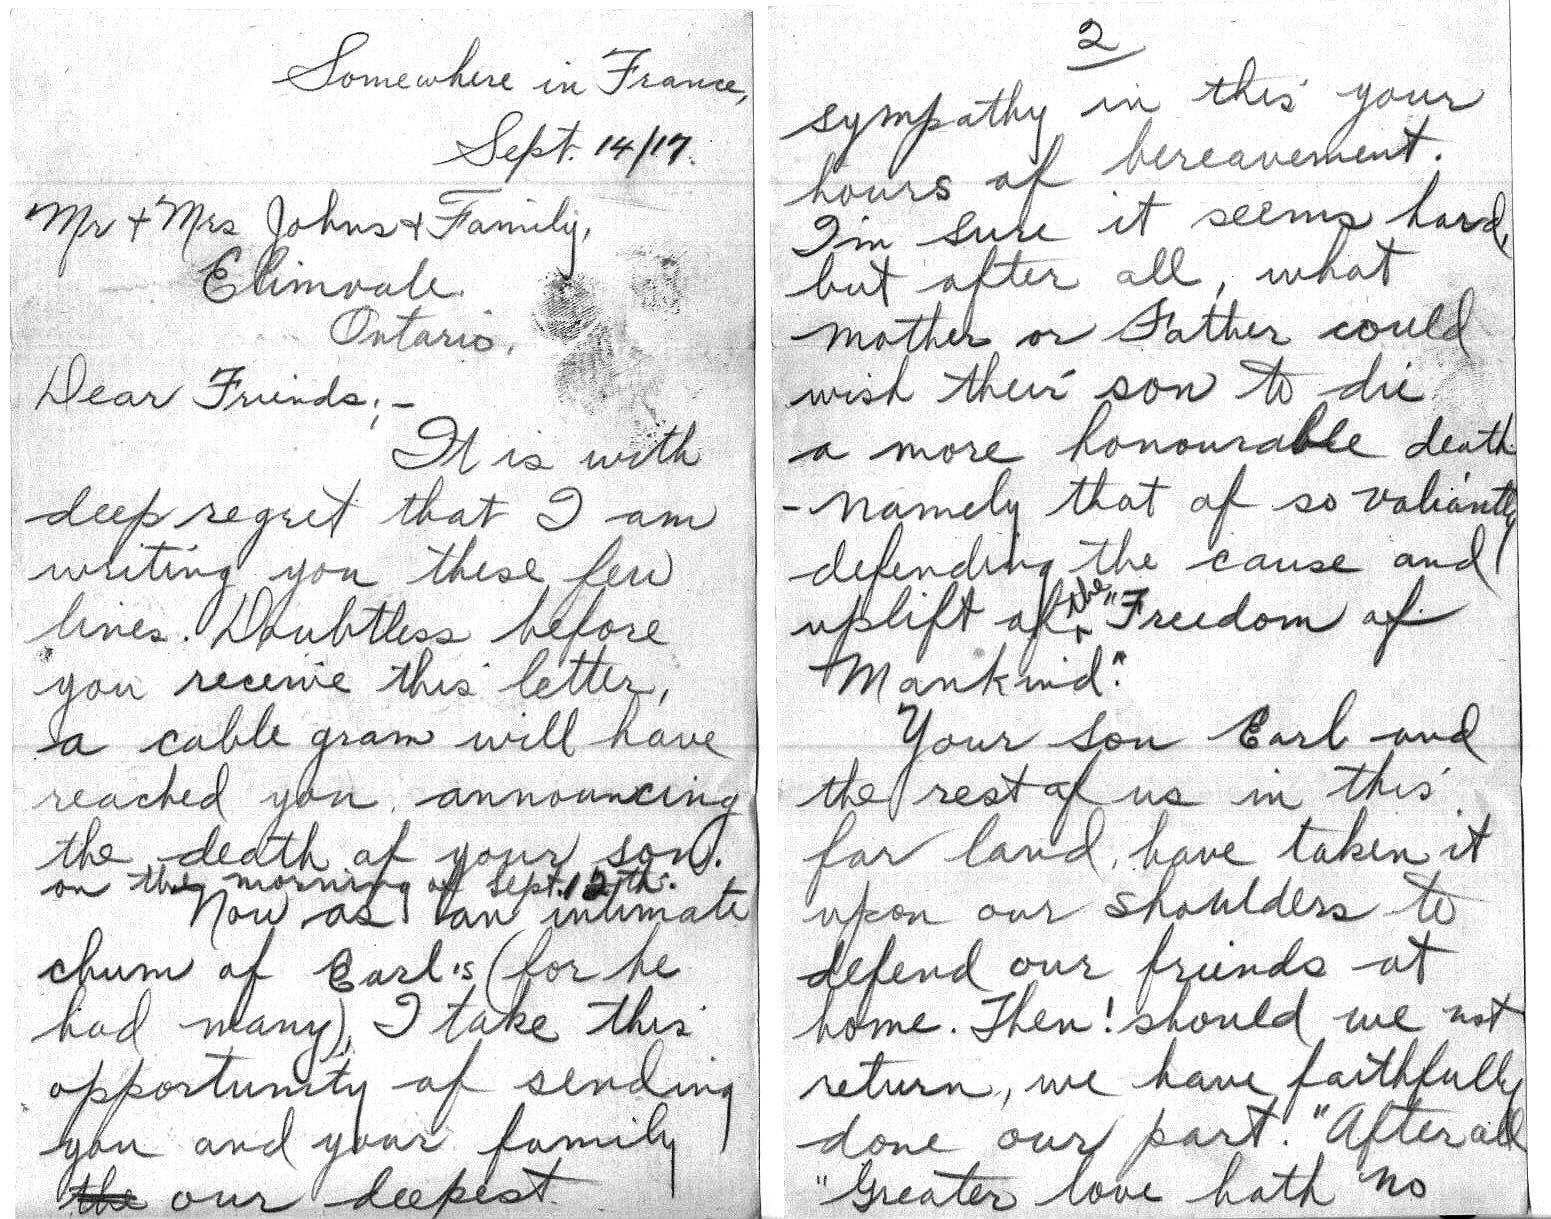 Somewhere in France,
Sept. 14/17.
Mr + Mrs Johns + Family,
Elimvale
Ontario.
Dear Friends;-
It is with
deep regret that I am
writing you these few
lines. Doubtless before
you receive this letter,
a cable gram will have
reached you, announcing
the death of your son.
on the morning of Sept. 12th.
Now as an intimate
chum of Earl's (for he
had many), I take this
opportunity of sending
you and your family
the our deepest
2
sympathy in this your
hours of bereavement.
I'm sure it seems hard,
but after all, what
mother or Father could
wish their son to die
a more honourable death
- namely that of so valiantly
defending the cause and
uplift of the "Freedom of
Mankind".
Your son Earl and
the rest of us in this
far land, have taken it
upon our shoulders to
defend our friends at
home. Then! should we not
return, we have faithfully
done our part. "After all
"Greater love hath no